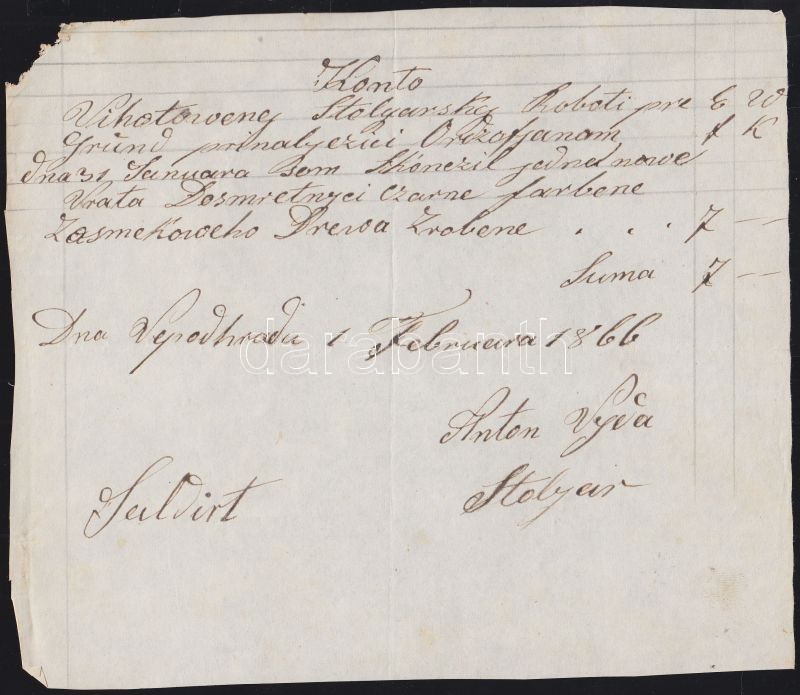 Konto
Vihotoweney Stolyarskey Roboti pre E W
Grund prinalyezici Orizofjanam f K
dna 31 Januara som Skonczil jedna nowe
Vrata Dosmretnyci czarne farbene
Zasmekoweho Drewa Zrobene . . . 7 —
Suma 7 —
Dna Vepodhradu 1 Februara 1866
darabanth
Anton Vyda
Stolyar
Saldirt